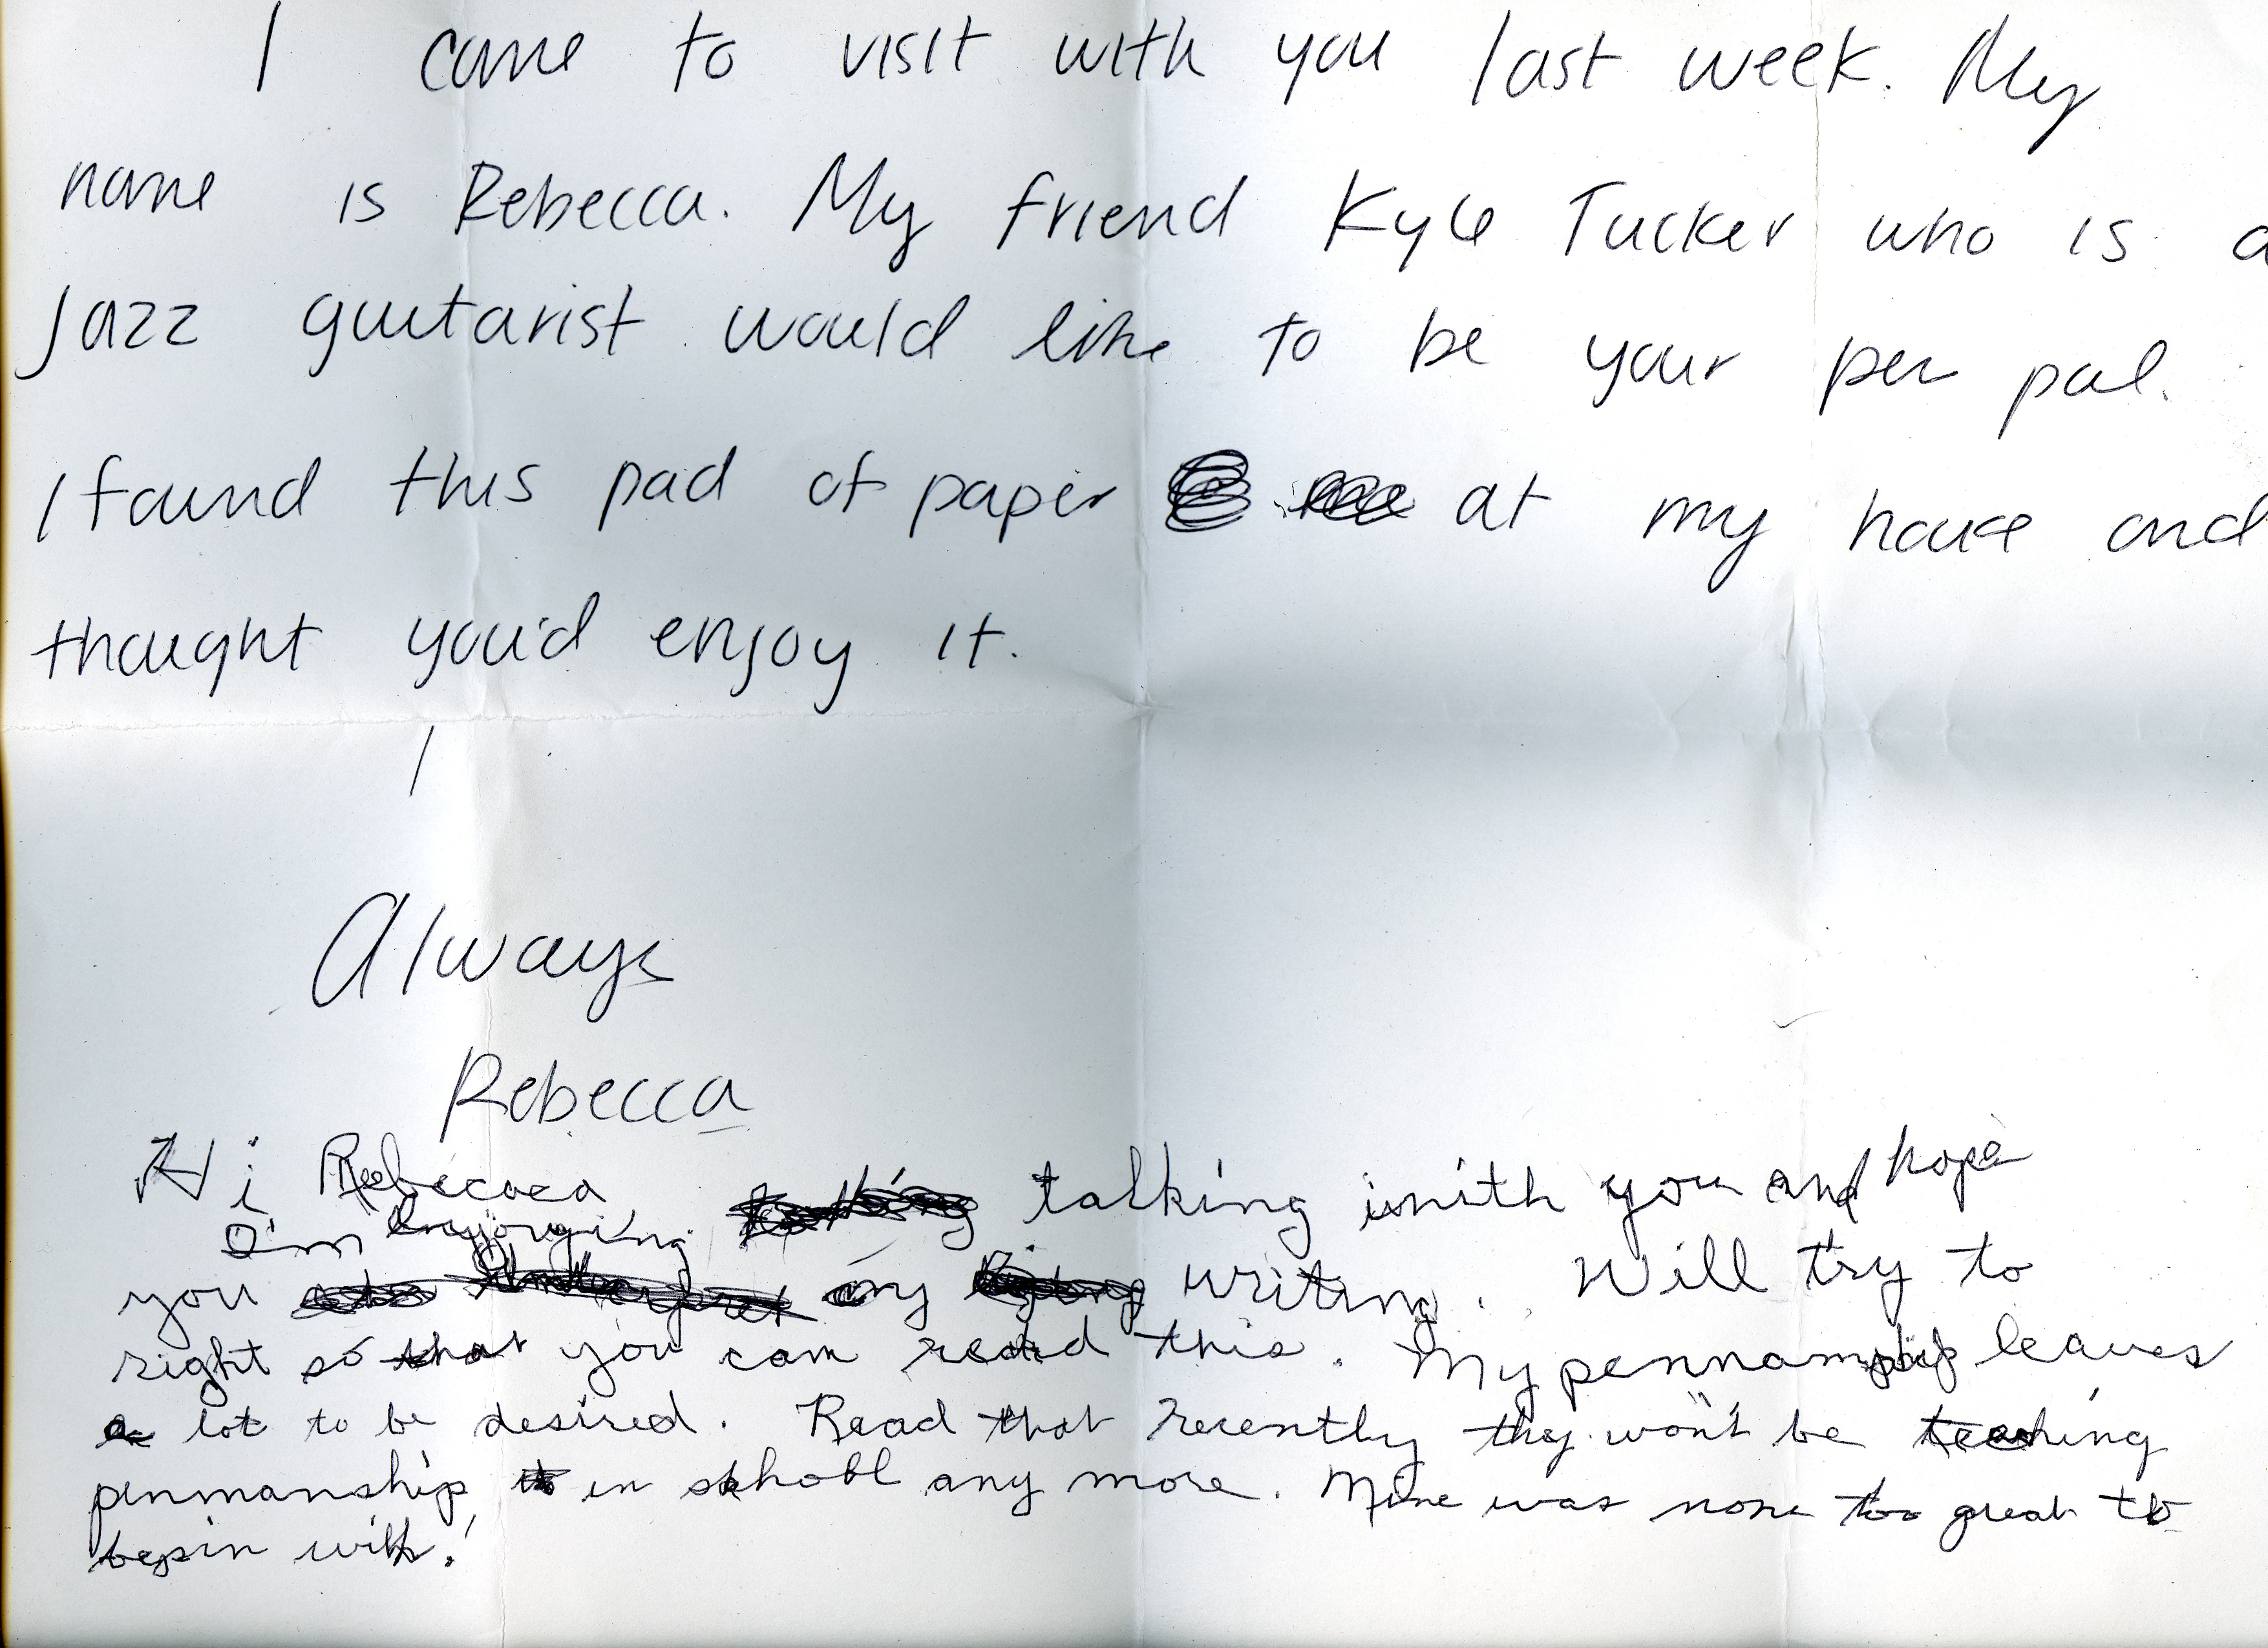 I came to visit with you last week. My
name is Rebecca. My friend Kyle Tucker who is a
jazz guitarist would like to be your pen pal.
I found this pad of paper at my house and
thought you'd enjoy it.
I
Always
Rebecca
Hi Rebecaca
I'm enjoying talking with you and hope
you my writing. Will try to
right so that you can read this. My pennamship leaves
a lot to be desired. Read that recently they won't be teaching
penmanship in schobl any more. Mine was none too great to
begin with!